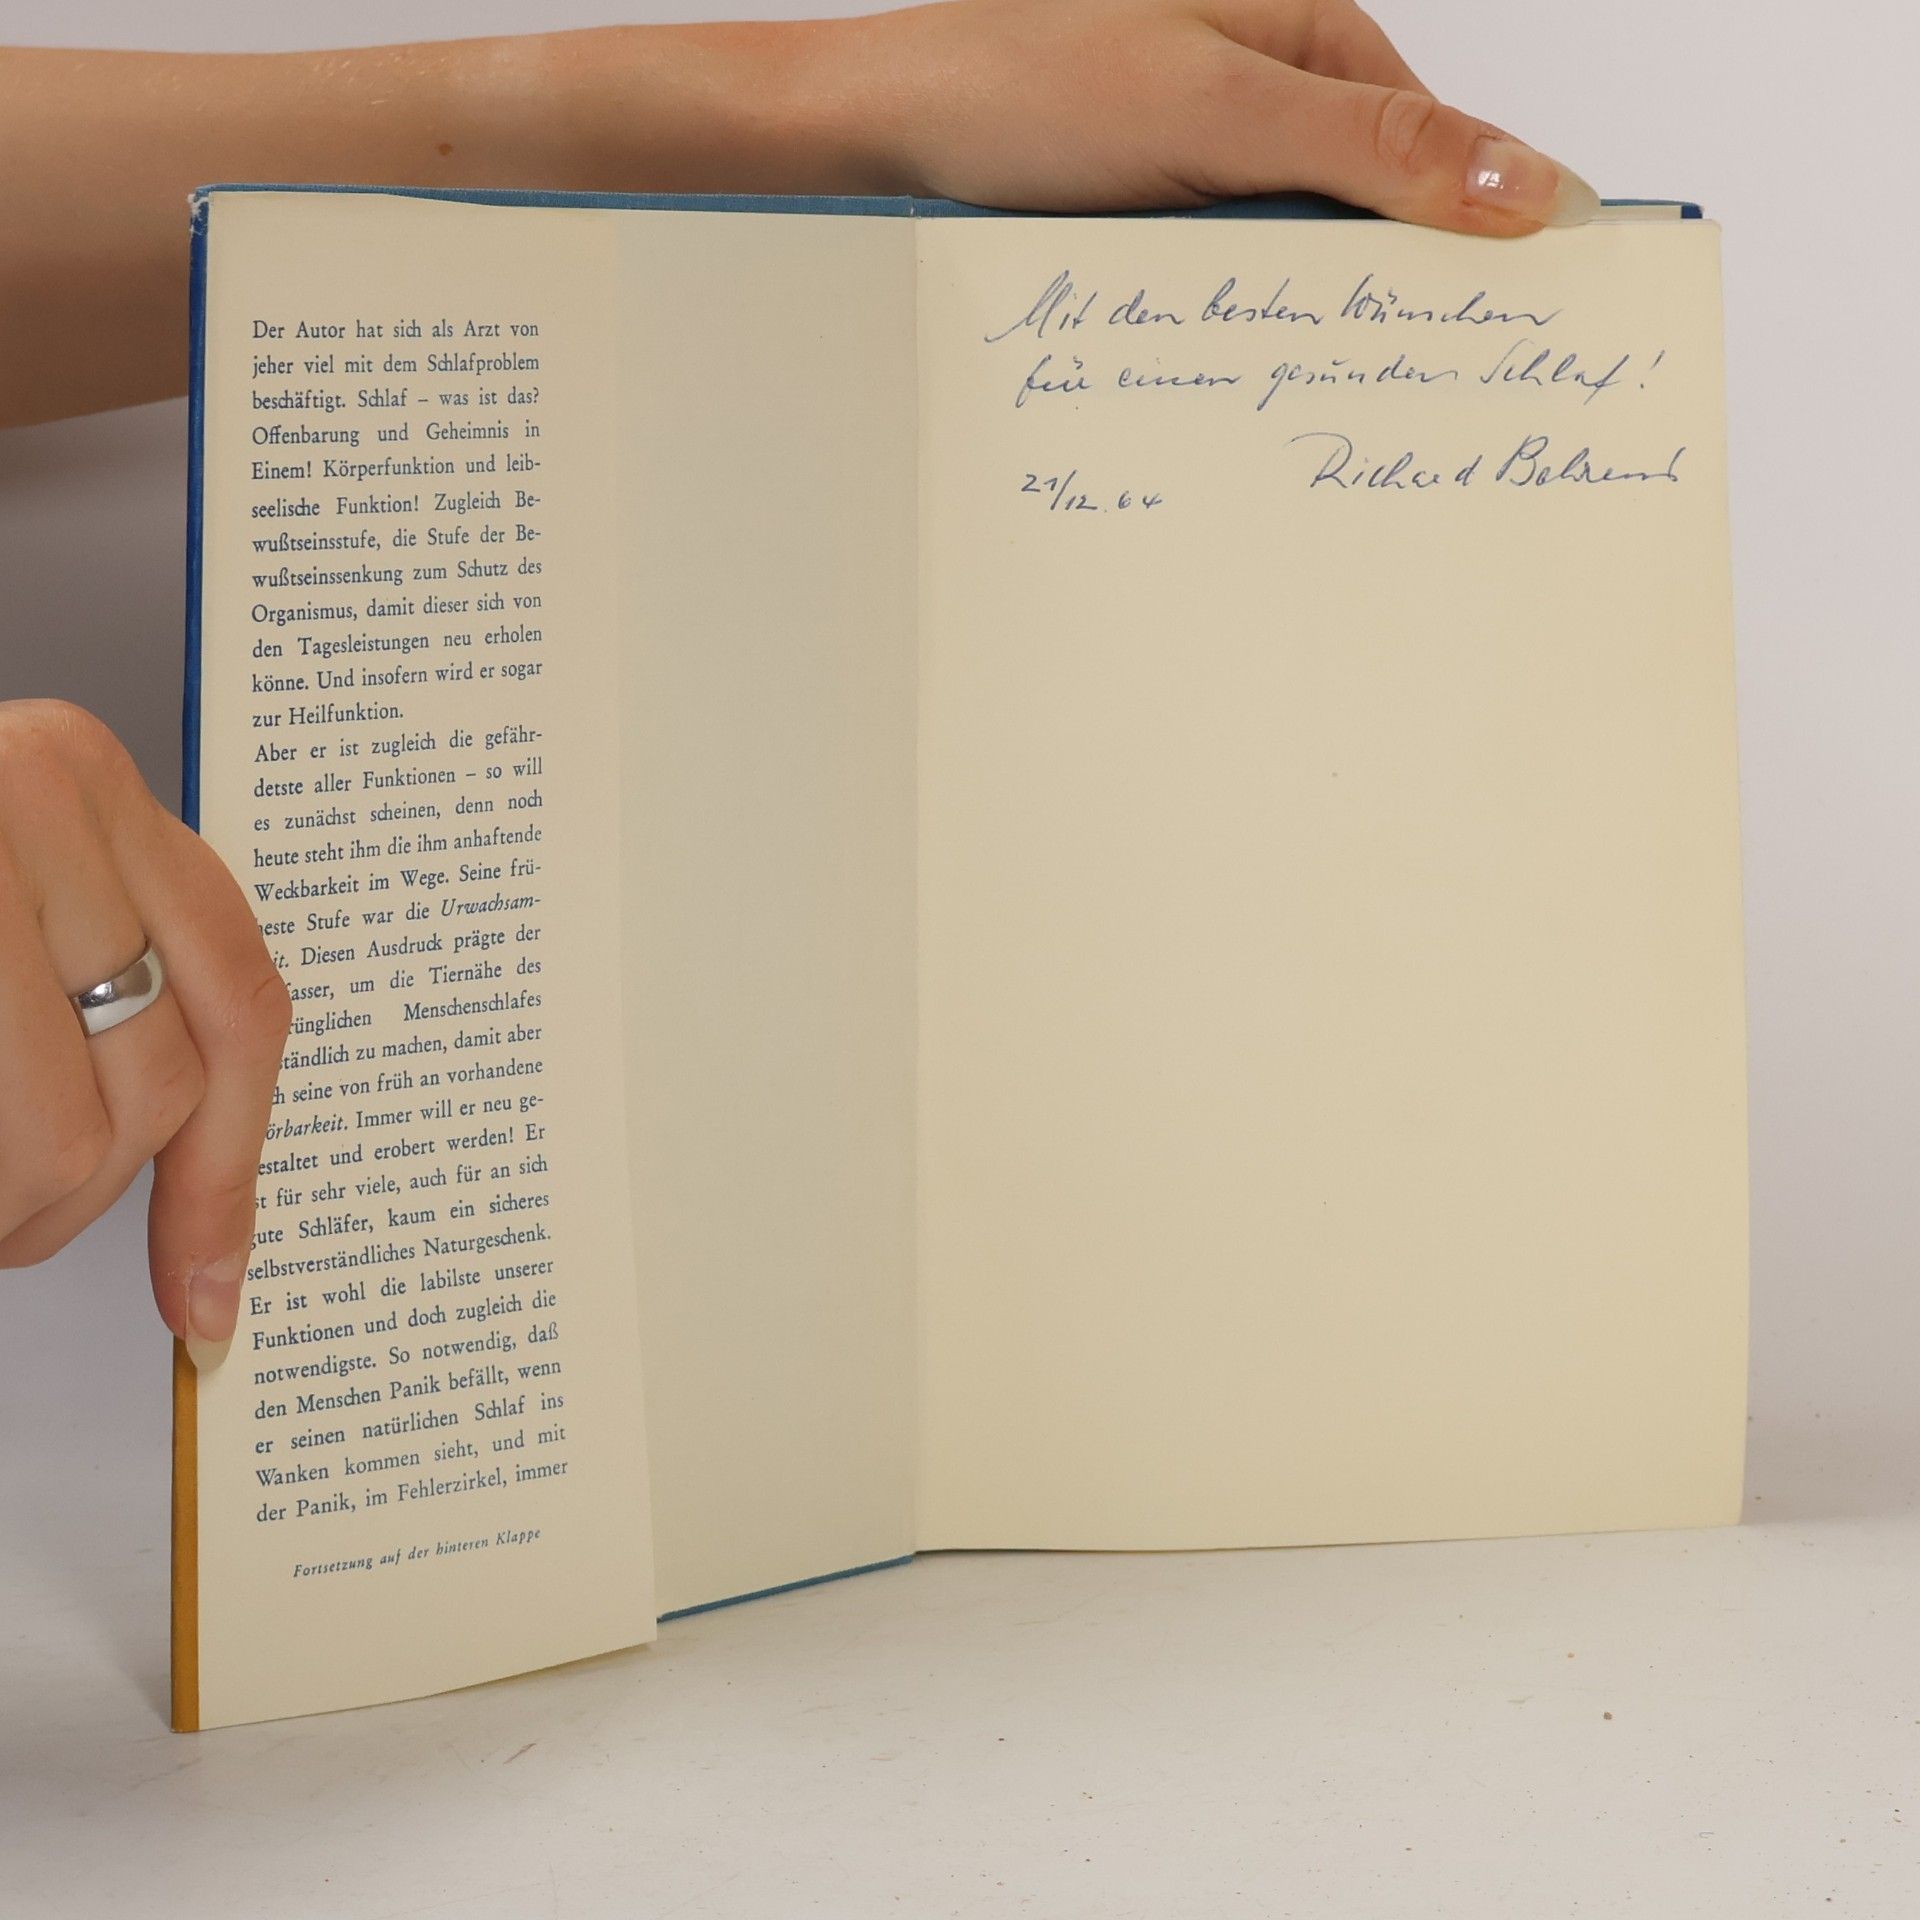 Der Autor hat sich als Arzt von
jeher viel mit dem Schlafproblem
beschäftigt. Schlaf – was ist das?
Offenbarung und Geheimnis in
Einem! Körperfunktion und leib-
seelische Funktion! Zugleich Be-
wußtseinsstufe, die Stufe der Be-
wußtseinssenkung zum Schutz des
Organismus, damit dieser sich von
den Tagesleistungen neu erholen
könne. Und insofern wird er sogar
zur Heilfunktion.
Aber er ist zugleich die gefähr-
detste aller Funktionen – so will
es zunächst scheinen, denn noch
heute steht ihm die ihm anhaftende
Weckbarkeit im Wege. Seine frü-
heste Stufe war die Urwachsam-
it. Diesen Ausdruck prägte der
fasser, um die Tiernähe des
rünglichen Menschenschlafes
ständlich zu machen, damit aber
ch seine von früh an vorhandene
örbarkeit. Immer will er neu ge-
estaltet und erobert werden! Er
st für sehr viele, auch für an sich
gute Schläfer, kaum ein sicheres
selbstverständliches Naturgeschenk.
Er ist wohl die labilste unserer
Funktionen und doch zugleich die
notwendigste. So notwendig, daß
den Menschen Panik befällt, wenn
er seinen natürlichen Schlaf ins
Wanken kommen sieht, und mit
der Panik, im Fehlerzirkel, immer
Fortsetzung auf der hinteren Klappe
Mit den besten Wünschen
für einen gesunden Schlaf!
21/12.64 Richard Behrens